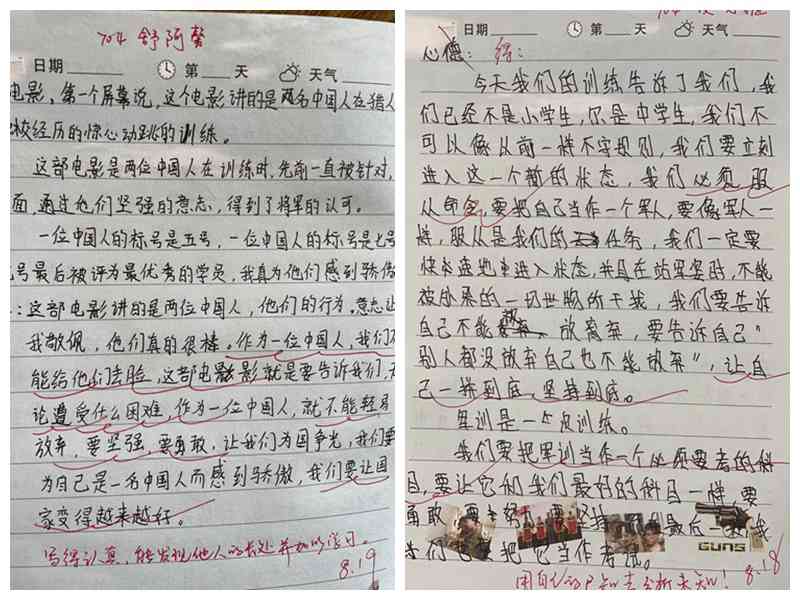 704 舒阿
日期 第 天 天气
电影,第一个屏幕说,这个电影讲的是两名中国人在猎人
校经历的惊心动跳的训练。
这部电影是两位中国人在训练时,先前一直被针对,
面,通过他们坚强的意志,得到了将军的认可。
一位中国人的标号是五号,一位中国人的标号是七号
号最后被评为最优秀的学员,我真为他们感到骄傲
:这部电影讲的是两位中国人,他们的行为.意志让
我敬佩,他们真的很棒。作为一位中国人,我们不
能给他们丢脸,这部电影就是要告诉我们,
论遭受什么困难,作为一位中国人,就不能轻易
放弃,要坚强,要勇敢,让我们为国争光,我们要
为自己是一名中国人而感到骄傲,我们要让国
家变得越来越好。
写得认真,能发现他人的长处并加以学习。
8.19
日期 第 天 天气
心德:得:
今天我们的训练告诉了我们,我
们已经不是小学生,尔是中学生,我们不
可以像从前一样不守规则,我们要立刻
进入这一个新的状态,我们必须服
从命令,要把自己当作一个军人,要像军人一
样,服从是我们的任务,我们一定要
快速地进入状态,并且在站军姿时,不能
被外界的一切世物所干扰,我们要告诉
自己不能放弃,要告诉自己"
别人都没放弃自己也不能放弃",让自
己一拼到底,坚持到底。
军训是一个训练。
我们要把军训当作一个必须要考的科
目,要让它和我们最好的科目一样,要
勇敢,要 最后
们 要把它当作考试。
GUNS
用自己的已知去分析未知!8.18